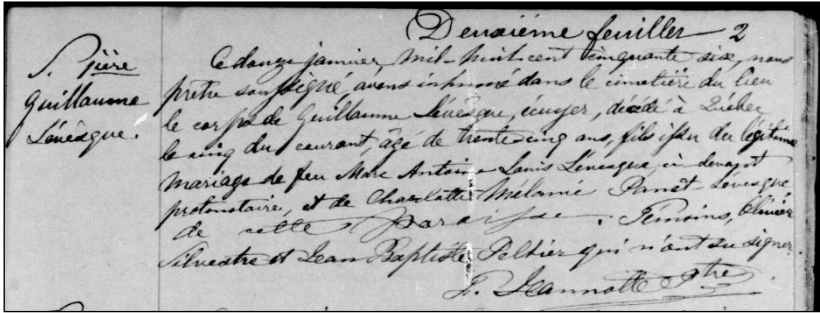 Deuxième feuillet 2
S. 1ière
Guillaume
Lévèsque.
Ce douze janvier, mil-huit-cent cinquante six, nous
prêtre soussigné, avons inhumé dans le cimetière du lieu
le corps de Guillaume Lévèsque, écuyer, décédé à Québec
le cinq du courant, âgé de trente cinq ans, fils issu du légitime
mariage de feu Marc Antoine Louis Lévesque, ci-devant
protonotaire, et de Charlotte Mélanie Panet-Lévesque
de cette paroisse. Témoins, Olivier
Silvestre et Jean Baptiste Peltier qui n'ont su signer.
F. Jeannotte Ptre